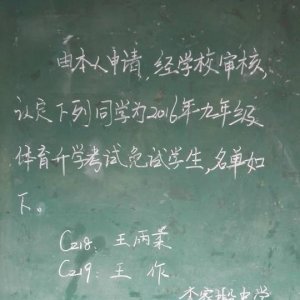 由本人申请,经学校审核,
认定下列同学为2016年九年级
体育升学考试免试学生,名单如
下。
C218: 王炳
C219: 王作
中学